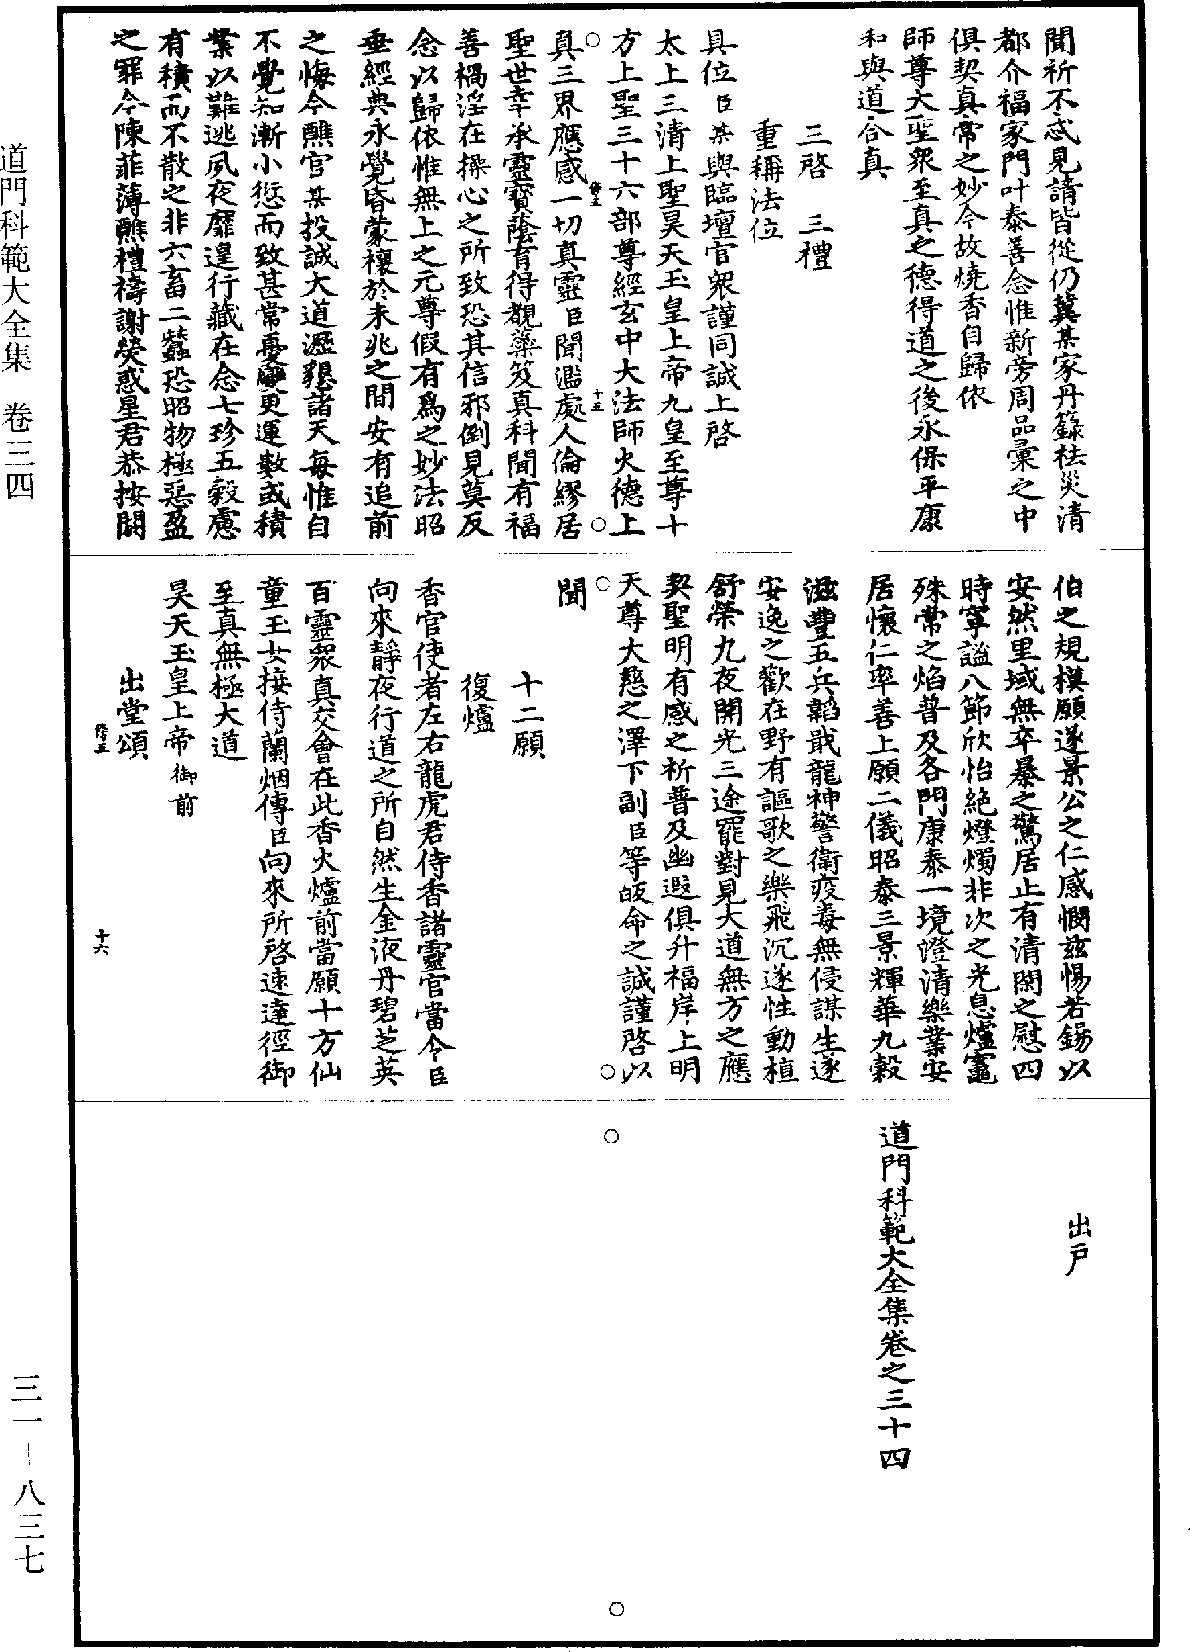 聞祈不忒見請皆從仍冀某家丹籙祛災清
都介福家門叶泰善念惟新旁周品彙之中
俱契真常之妙今故燒香自歸依
師尊大聖衆至真之德得道之後永保平康
和與道合真
三啓　三禮
重稱法位
具位臣某與臨壇官衆謹同誠上啓
太上三清上聖昊天玉皇上帝九皇至尊十
方上聖三十六部尊經玄中大法師火德上
十五
真三界應感一切真靈臣聞濫處人倫繆居
聖世幸承靈寶蔭育得覩蘂笈真科聞有福
善禍淫在操心之所致恐其信邪倒見莫反
念以歸依惟無上之元尊假有爲之妙法昭
垂經典永覺昏蒙禳於未兆之間安有追前
之悔今醮官某投誠大道瀝懇諸天每惟自
不覺知漸小愆而致甚常憂變更運數或積
業以難逃夙夜靡遑行藏在念七珍五穀慮
有積而不散之非六畜二蠶恐昭物極惡盈
之罪今陳菲薄醮禮禱謝熒惑星君恭按閼
伯之規模願遂景公之仁感憫茲惕若錫以
安然里域無卒暴之驚居止有清閑之慰四
時寧謐八節欣怡絶燈燭非次之光息爐竈
殊常之焰普及各門康泰一境澄清樂業安
居懷仁率善上願二儀昭泰三景輝華九穀
滋豐五兵韜戢龍神警衛疫毒無侵謀生遂
安逸之歡在野有謳歌之樂飛沉遂性動植
舒榮九夜開光三途罷對見大道無方之應
契聖明有感之祈普及幽遐俱升福岸上明
天尊大慈之澤下副臣等皈命之誠謹啓以
聞
十二願
復爐
香官使者左右龍虎君侍香諸靈官當令臣
向來靜夜行道之所自然生金液丹碧芝英
百靈衆真交會在此香火爐前當願十方仙
童玉女接侍蘭烟傳臣向來所啓速達徑御
至真無極大道
昊天玉皇上帝御前
出堂頌
十六
出戶
道門科範大全集卷之三十四
道門科範大全集　卷三四
三一－八三七